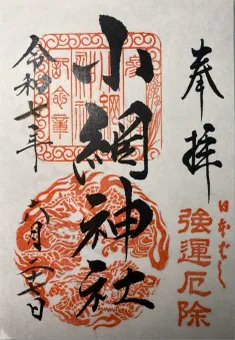 奉拝
日本ばし
強運厄除
小網神社
令和七年
六月廿四日